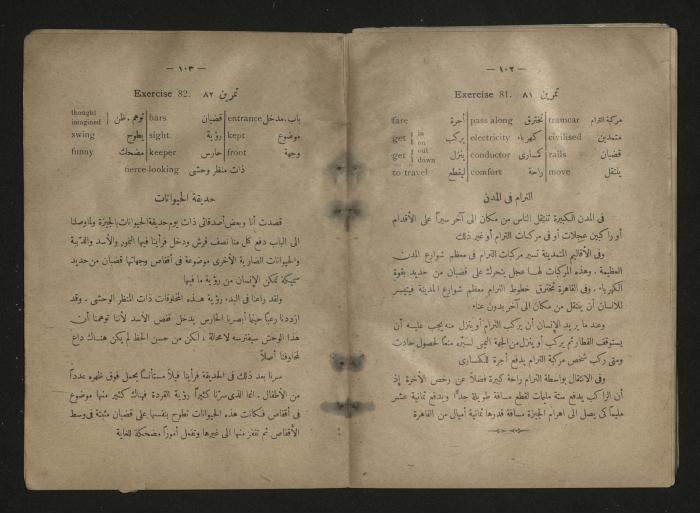 — ١٠٢ —
Exercise 81. تمرين ٨١
fare أجرة pass along تخترق tramcar مركبة الترام
get in on يركب electricity كهرباء civilised متمدين
get out down ينزل conductor كمسارى rails قضبان
to travel ليقطع comfort راحة move ينتقل
الترام فى المدن
فى المدن الكبيرة تنتقل الناس من مكان الى آخر سيراً على الأقدام
أو راكبين عجلات أو فى مركبات الترام أو غير ذلك
وفى الأقاليم المتمدينة تسير مركبات الترام فى معظم شوارع المدن
العظيمة . وهذه المركبات لها عجل يتحرك على قضبان من حديد بقوة
الكهرباء . وفى القاهرة تخترق خطوط الترام معظم شوارع المدينة فيتيسر
للانسان أن ينتقل من مكان الى آخر بدون عناء
وعند ما يريد الإنسان أن يركب الترام أو ينزل منه يجب عليه أن
يستوقف القطار ثم يركب أو ينزل من الجهة اليمنى لسيره منعاً لحصول حادث
ومتى ركب شخص مركبة الترام يدفع أجرة للكمسارى
وفى الانتقال بواسطة الترام راحة كبيرة فضلاً عن رخص الأجرة إذ
أن الراكب يدفع ستة مليمات لقطع مسافة طويلة جداً ويدفع ثمانية عشر
مليماً كى يصل الى اهرام الجيزة مسافة قدرها ثمانية أميال من القاهرة
— ١٠٣ —
Exercise 82. تمرين ٨٢
thought imagined توهم . ظن bars قضبان entrance باب . مدخل
swing يطوح sight رؤية kept موضوع
funny مضحك keeper حارس front وجهة
fierce-looking ذات منظر وحشى
حديقة الحيوانات
قصدت أنا وبعض أصدقائى ذات يوم حديقة الحيوانات بالجيزة ولما وصلنا
الى الباب دفع كل منا نصف قرش ودخل فرأينا فيها النمور والأسد والدببة
والحيوانات الضارية الأخرى موضوعة فى أقفاص وجهاتها قضبان من حديد
سميكة تمكن الإنسان من رؤية ما فيها
ولقد راعنا فى البدء رؤية هذه المخلوقات ذات المنظر الوحشى . وقد
ازددنا رعباً حينما أبصرنا الحارس يدخل قفص الاسد لأننا توهمنا أن
هذا الوحش سيفترسه لا محالة ، لكن من حسن الحظ لم يكن هناك داع
لمخاوفنا أصلاً
سرنا بعد ذلك فى الحديقة فرأينا فيلاً مستأنساً يحمل فوق ظهره عدداً
من الأطفال . انما الذى سرّنا كثيراً رؤية القردة فهناك كثير منها موضوع
فى أقفاص فكانت هذه الحيوانات تطوح بنفسها على قضبان مثبتة فى وسط
الأقفاص ثم تقفز منها الى غيرها وتفعل أموراً مضحكة للغاية